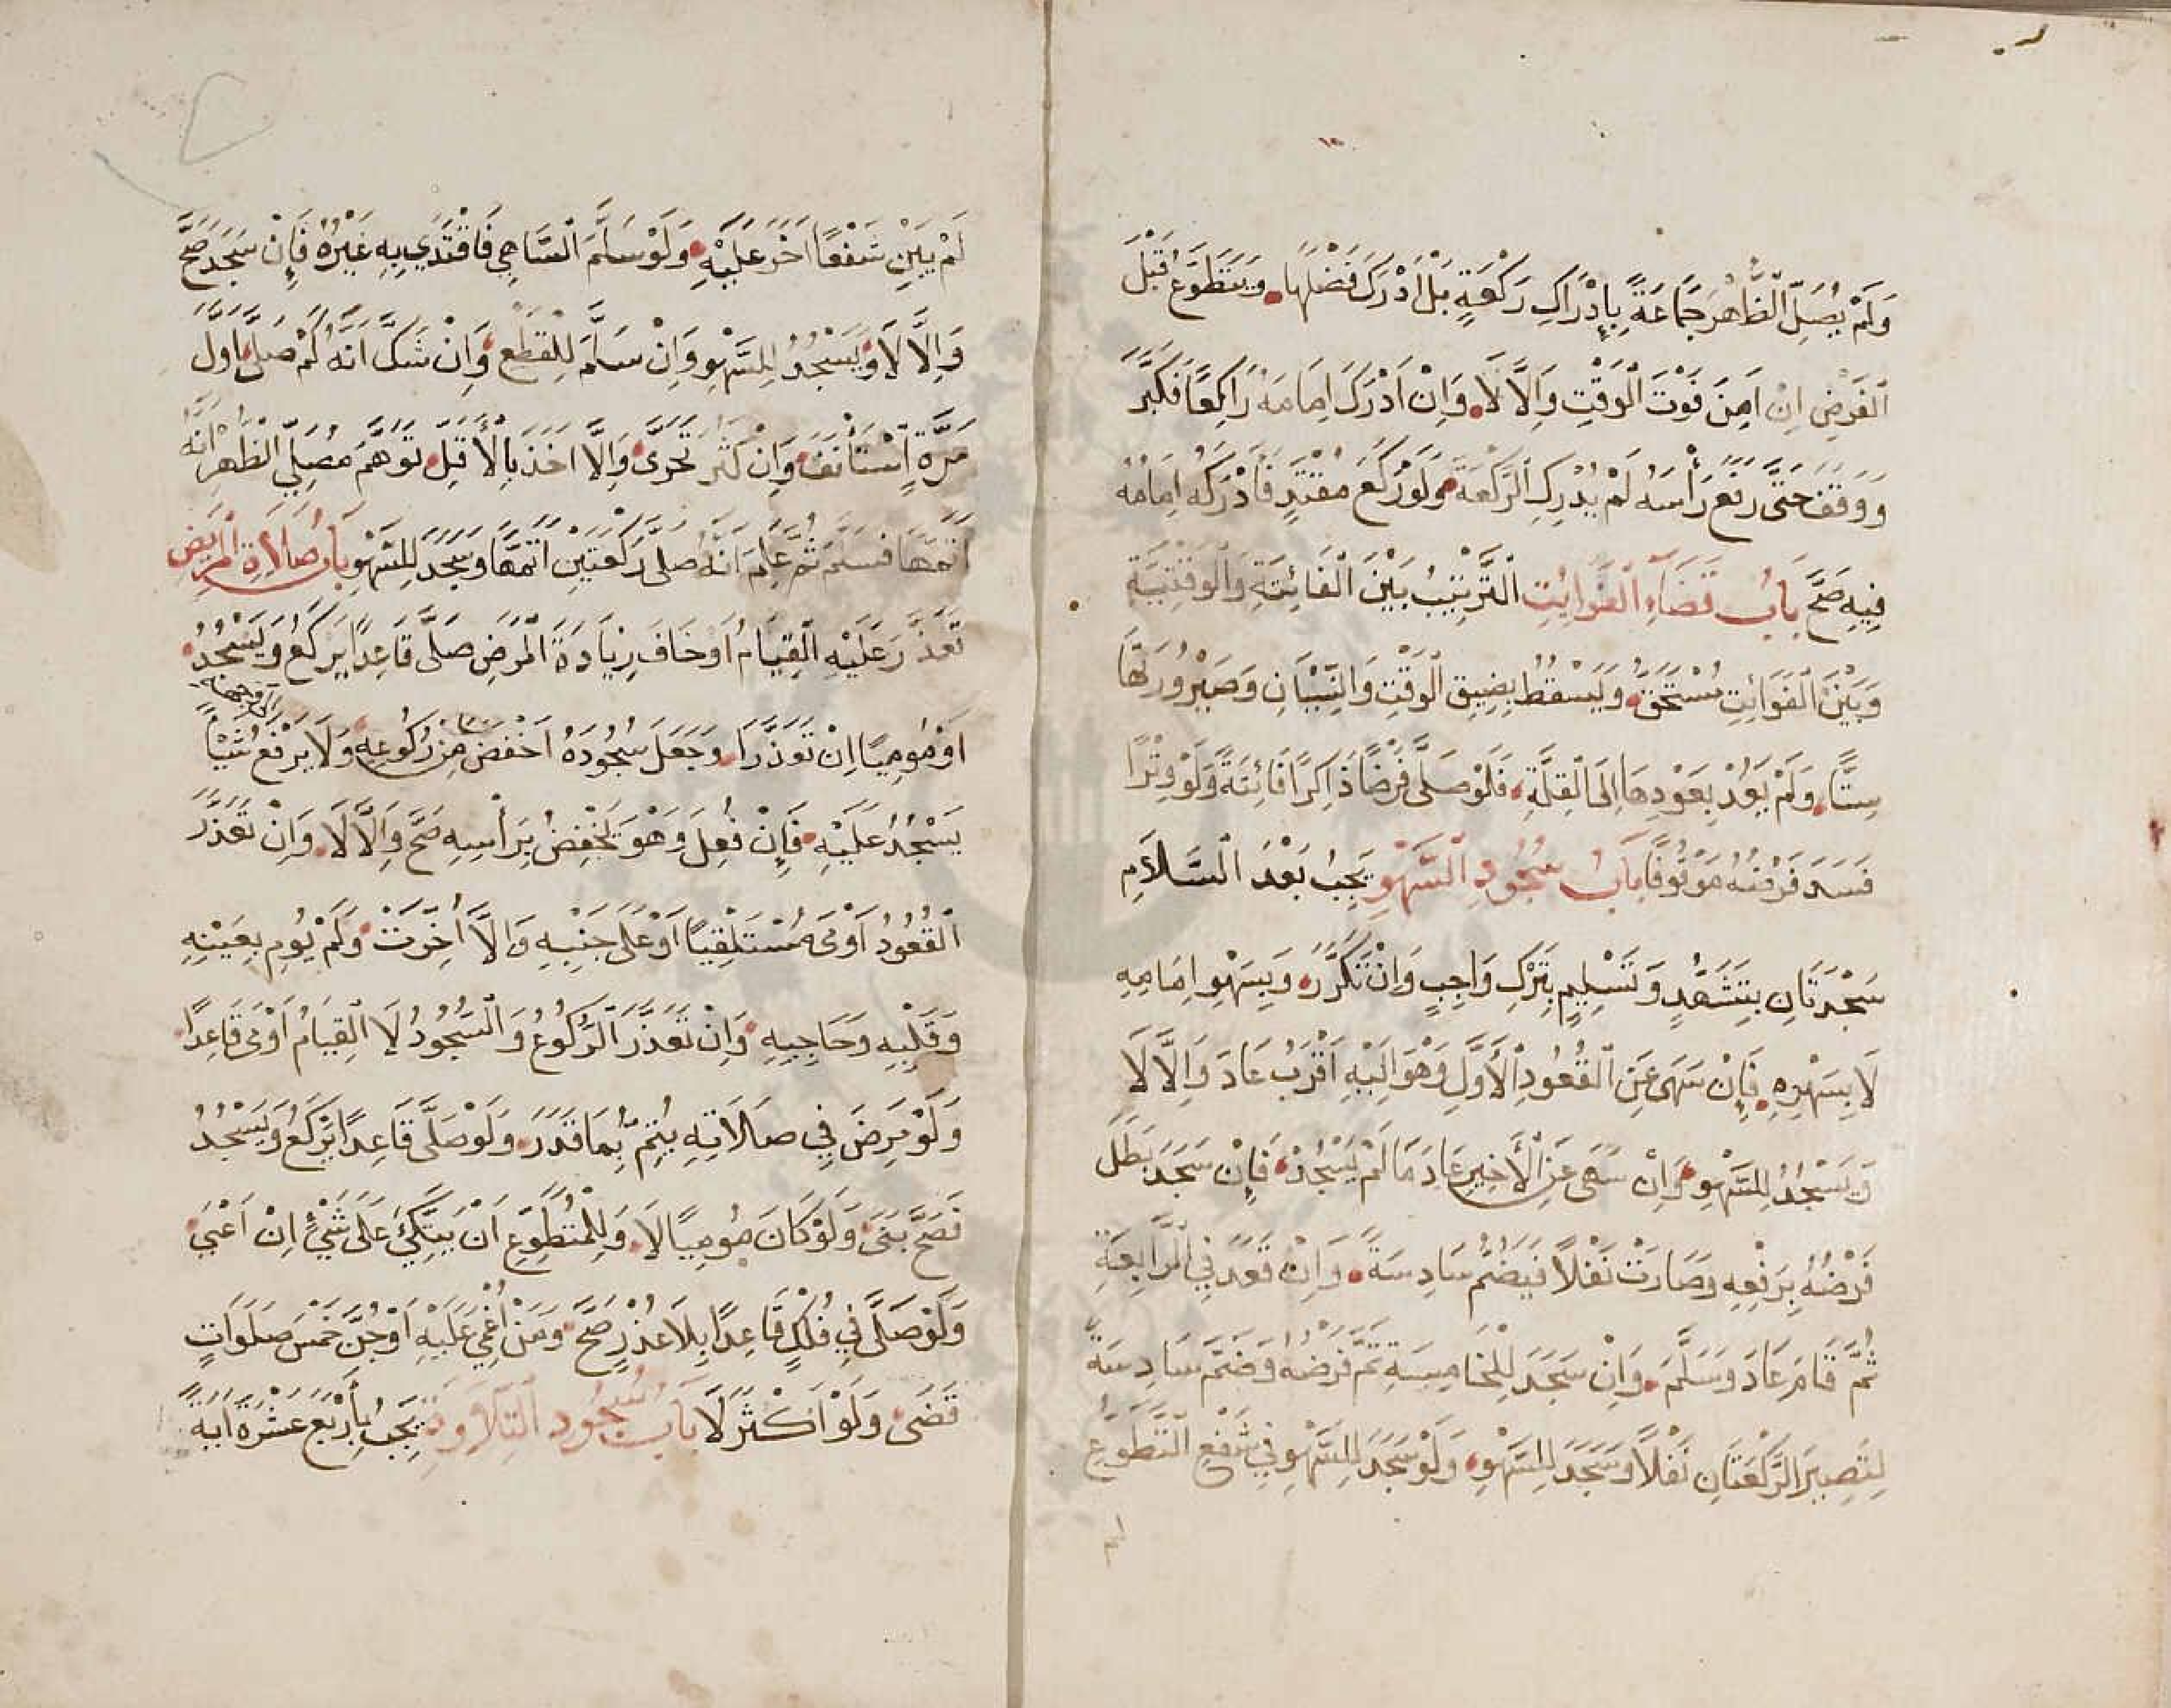 وَلَمْ يُصَلِّ الظُّهْرَ جَمَاعَةً بِإِدْرَاكِ رَكْعَةٍ بَلْ أَدْرَكَ فَضْلَهَا وَيَتَطَوَّعُ قَبْلَ
الْفَرْضِ اِنْ اَمِنَ فَوْتَ الْوَقْتِ وَاِلَّا لَا وَاِنْ اَدْرَكَ اِمَامَهُ رَاكِعًا فَكَبَّرَ
وَوَقَفَ حَتَّى رَفَعَ رَأْسَهُ لَمْ يُدْرِكِ الرَّكْعَةَ وَلَوْ رَكَعَ مُقْتَدٍ فَأَدْرَكَهُ اِمَامُهُ
فِيهِ صَحَّ بَابُ قَضَاءِ الْفَوَايِتِ التَّرْتِيبُ بَيْنَ الْفَائِتَةِ وَالْوَقْتِيَّةِ
وَبَيْنَ الْفَوَائِتِ مُسْتَحَقٌّ وَيَسْقُطُ بِضِيقِ الْوَقْتِ وَالنِّسْيَانِ وَصَيْرُورَتِهَا
سِتًّا وَلَمْ يَعُدْ بِعَوْدِهَا اِلَى الْقِلَّةِ فَلَوْ صَلَّى فَرْضًا ذَاكِرًا فَائِتَةً وَلَوْ وِتْرًا
فَسَدَ فَرْضُهُ مَوْقُوفًا بَابُ سُجُودِ السَّهْوِ يَجِبُ بَعْدَ السَّلَامِ
سَجْدَتَانِ بِتَشَهُّدٍ وَتَسْلِيمٍ بِتَرْكِ وَاجِبٍ وَاِنْ تَكَرَّرَ وَبِسَهْوِ اِمَامِهِ
لَا بِسَهْوِهِ فَإِنْ سَهَى عَنِ الْقُعُودِ الْأَوَّلِ وَهُوَ اِلَيْهِ اَقْرَبُ عَادَ وَاِلَّا لَا
وَيَسْجُدُ لِلسَّهْوِ وَاِنْ سَهَى عَنِ الْأَخِيرِ عَادَ مَا لَمْ يَسْجُدْ فَإِنْ سَجَدَ بَطَلَ
فَرْضُهُ بِرَفْعِهِ وَصَارَتْ نَفْلًا فَيَضُمُّ سَادِسَةً وَاِنْ قَعَدَ فِي الرَّابِعَةِ
ثُمَّ قَامَ عَادَ وَسَلَّمَ وَاِنْ سَجَدَ لِلْخَامِسَةِ تَمَّ فَرْضُهُ وَضَمَّ سَادِسَةً
لِتَصِيرَ الرَّكْعَتَانِ نَفْلًا وَسَجَدَ لِلسَّهْوِ وَلَوْ سَجَدَ لِلسَّهْوِ فِي شَفْعِ التَّطَوُّعِ
لم
لَمْ يَبْنِ شَفْعًا اٰخَرَ عَلَيْهِ وَلَوْ سَلَّمَ السَّاهِي فَاقْتَدَي بِهِ غَيْرُهُ فَإِنْ سَجَدَ صَحَّ
وَاِلَّا لَا وَيَسْجُدُ لِلسَّهْوِ وَاِنْ سَلَّمَ لِلْقَطْعِ وَاِنْ شَكَّ اَنَّهُ كَمْ صَلَّى اَوَّلَ
مَرَّةٍ اِسْتَأْنَفَ وَاِنْ كَثُرَ تَحَرَّى وَاِلَّا اَخَذَ بِالْأَقَلِّ تَوَهَّمَ مُصَلِّي الظُّهْرِ اَنَّهُ
اَتَمَّهَا فَسَلَّمَ ثُمَّ عَلِمَ اَنَّهُ صَلَّى رَكْعَتَيْنِ اَتَمَّهَا وَسَجَدَ لِلسَّهْوِ بَابُ صَلَاةِ الْمَرِيضِ
تَعَذَّرَ عَلَيْهِ الْقِيَامُ اَوْ خَافَ زِيَادَةَ الْمَرَضِ صَلَّى قَاعِدًا يَرْكَعُ وَيَسْجُدُ
اَوْ مُومِيًا اِنْ تَعَذَّرَا وَجَعَلَ سُجُودَهُ اَخْفَضَ مِنْ رُكُوعِهِ وَلَا يَرْفَعُ شَيْأً
يَسْجُدُ عَلَيْهِ فَإِنْ فُعِلَ وَهُوَ يَخْفِضُ بِرَأْسِهِ صَحَّ وَاِلَّا لَا وَاِنْ تَعَذَّرَ
الْقُعُودُ اَوْمَى مُسْتَلْقِيًا اَوْ عَلَى جَنْبِهِ وَاِلَّا اُخِّرَتْ وَلَمْ يُومِ بِعَيْنِهِ
وَقَلْبِهِ وَحَاجِبِهِ وَاِنْ تَعَذَّرَ الرُّكُوعُ وَالسُّجُودُ لَا الْقِيَامُ اَوْمَى قَاعِدًا
وَلَوْ مَرِضَ فِي صَلَاتِهِ يُتِمُّ بِمَا قَدَرَ وَلَوْ صَلَّى قَاعِدًا يَرْكَعُ وَيَسْجُدُ
فَصَحَّ بَنَى وَلَوْ كَانَ مُومِيًا لَا وَلِلْمُتَطَوِّعِ اَنْ يَتَّكِئَ عَلَى شَيْءٍ اِنْ اَعْيَى
وَلَوْ صَلَّى فِي فُلْكٍ قَاعِدًا بِلَا عُذْرٍ صَحَّ وَمَنْ اُغْمِيَ عَلَيْهِ اَوْ جُنَّ خَمْسَ صَلَوَاتٍ
قَضَى وَلَوْ اَكْثَرَ لَا بَابُ سُجُودِ التِّلَاوَةِ يَجِبُ بِأَرْبَعَ عَشْرَةَ اٰيَةً